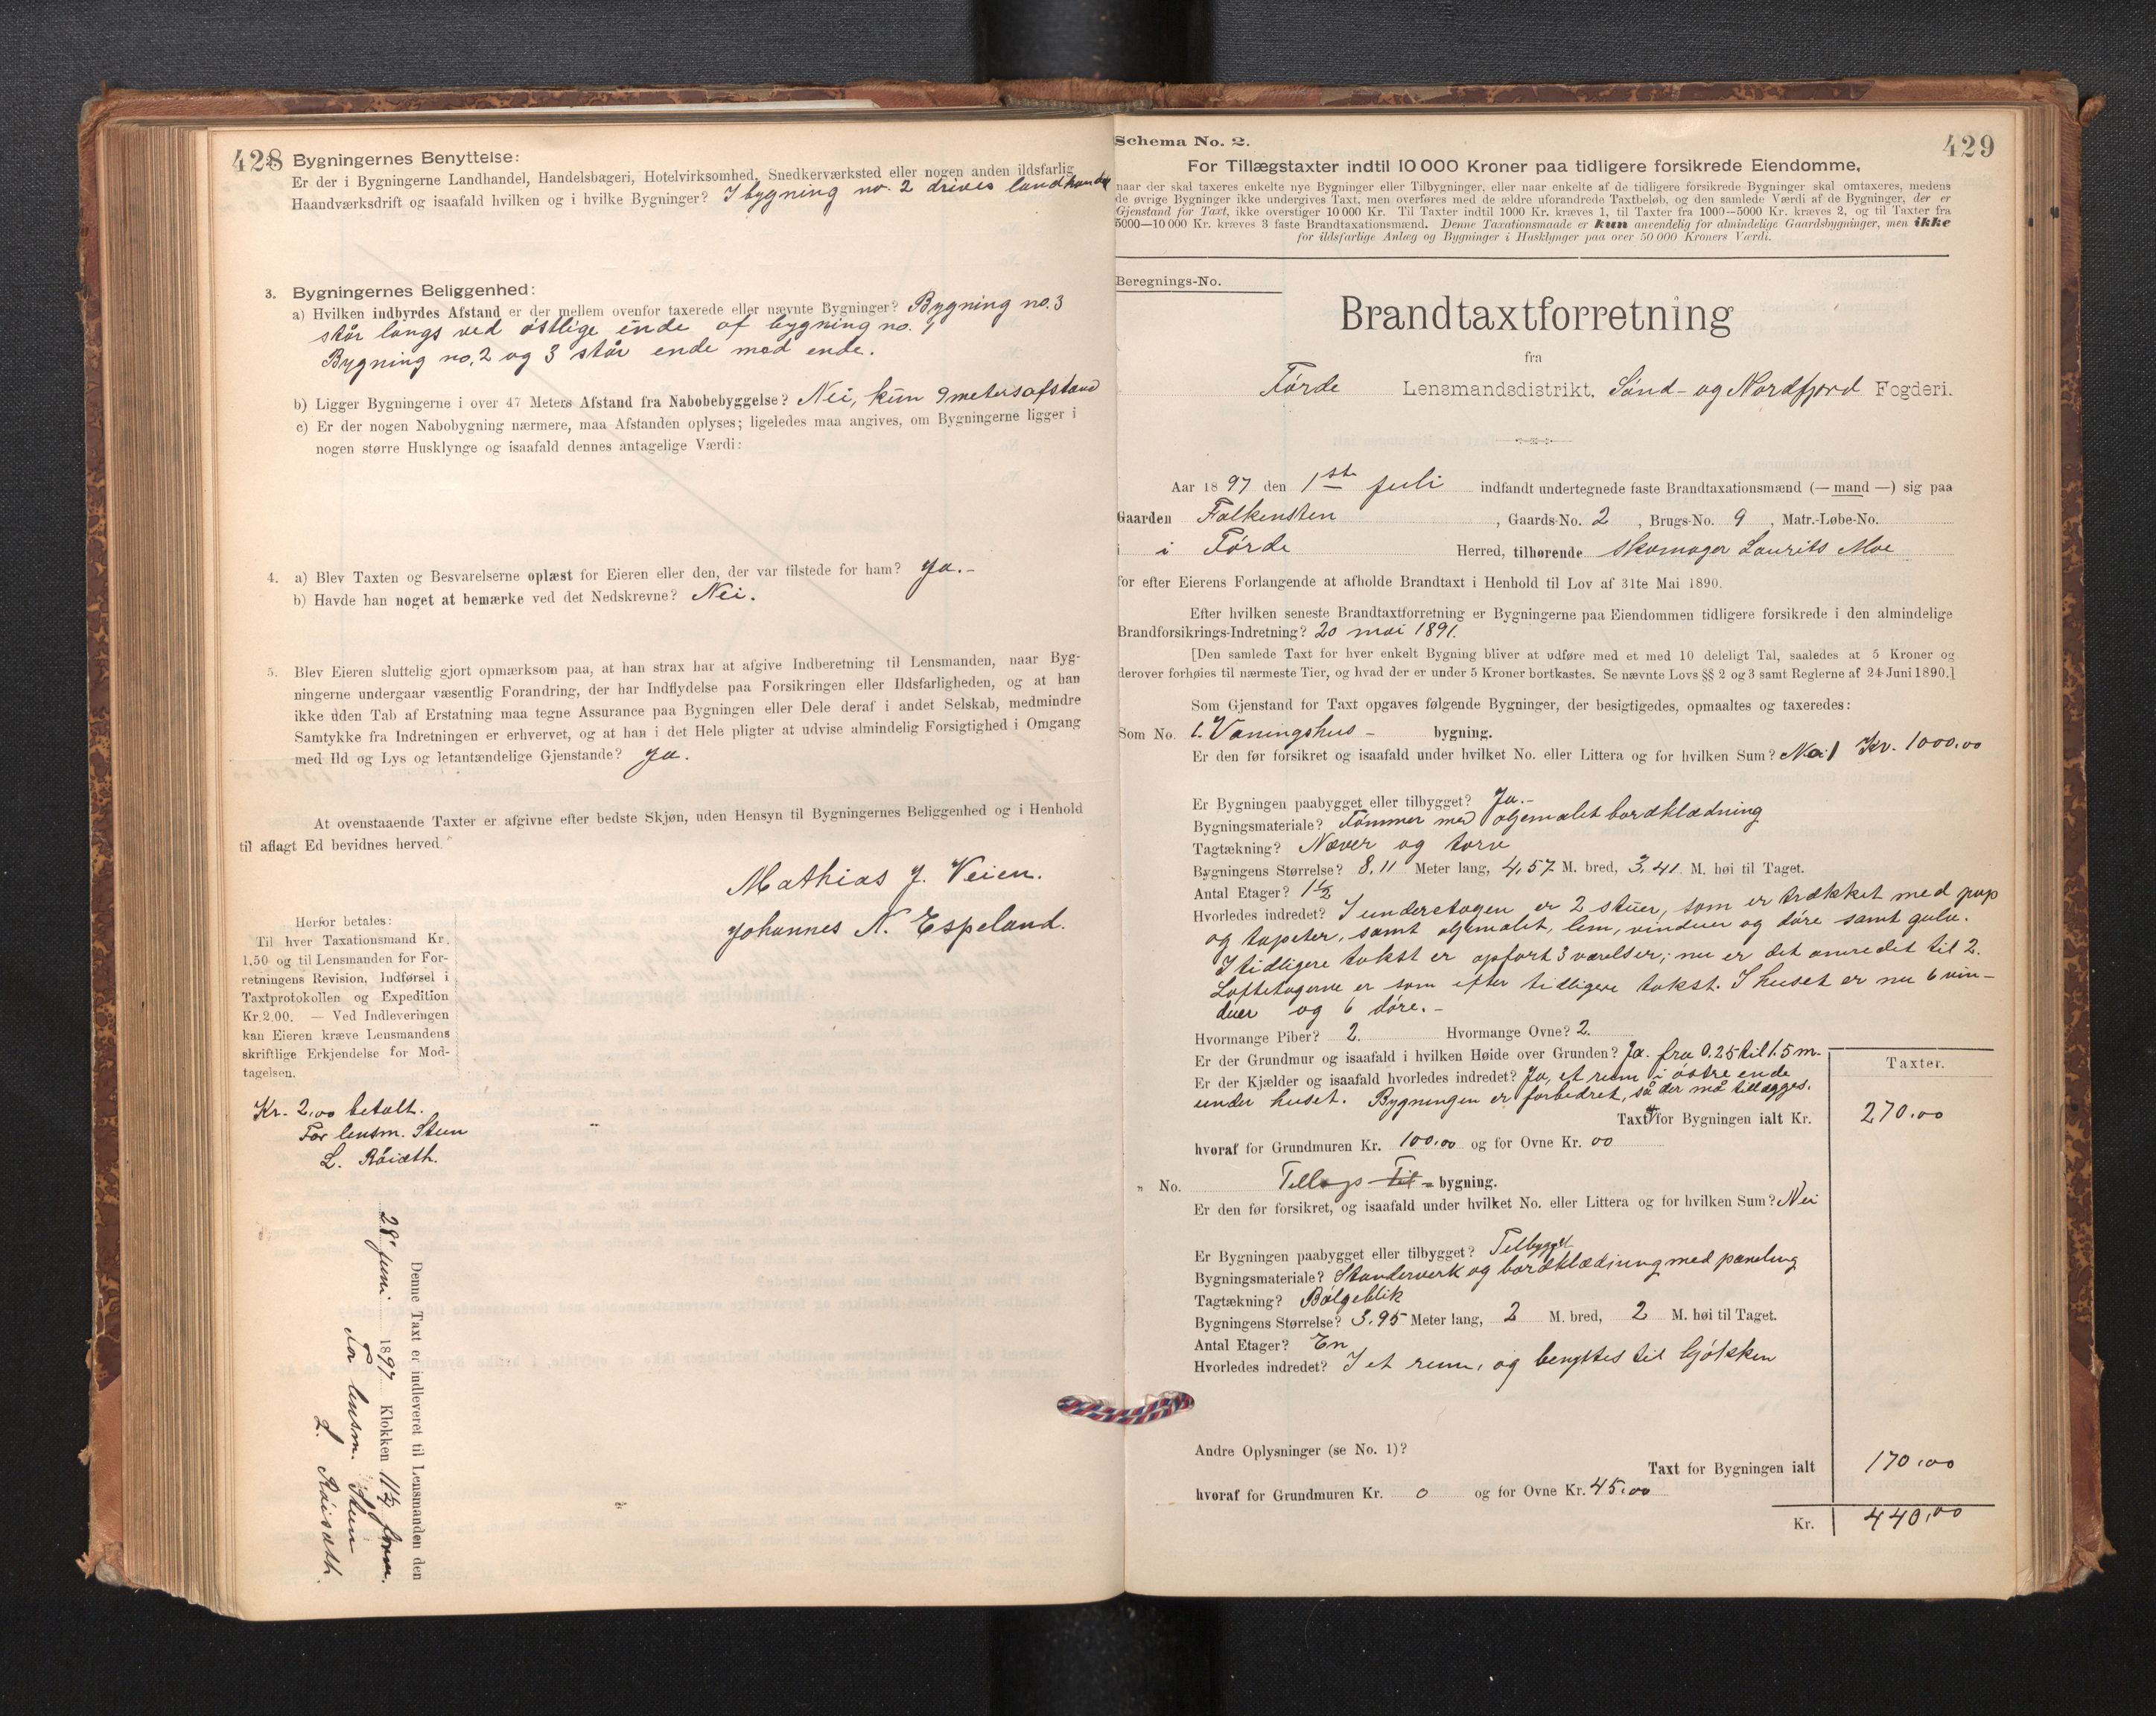 428
2. Bygningernes Benyttelse:
Er der i Bygningerne Landhandel, Handelsbageri, Hotelvirksomhed, Snedkerværksted eller nogen anden ildsfarlig
Haandværksdrift og isaafald hvilken og i hvilke Bygninger? I bygning no. 2 drives landhandel
3. Bygningernes Beliggenhed:
a) Hvilken indbyrdes Afstand er der mellem ovenfor taxerede eller nævnte Bygninger? Bygning no. 3
står langs ved østlige ende af bygning no. 1
Bygning no. 2 og 3 står ende mod ende.
b) Ligger Bygningerne i over 47 Meters Afstand fra Nabobebyggelse? Nei, kun 9 meters afstand
c) Er der nogen Nabobygning nærmere, maa Afstanden oplyses; ligeledes maa angives, om Bygningerne ligger i
nogen større Husklynge og isaafald dennes antagelige Værdi:
4. a) Blev Taxten og Besvarelserne oplæst for Eieren eller den, der var tilstede for ham? Ja.-
b) Havde han noget at bemærke ved det Nedskrevne? Nei.
5. Blev Eieren sluttelig gjort opmærksom paa, at han strax har at afgive Indberetning til Lensmanden, naar Byg-
ningerne undergaar væsentlig Forandring, der har Indflydelse paa Forsikringen eller Ildsfarligheden, og at han
ikke uden Tab af Erstatning maa tegne Assurance paa Bygningen eller Dele deraf i andet Selskab, medmindre
Samtykke fra Indretningen er erhvervet, og at han i det Hele pligter at udvise almindelig Forsigtighed i Omgang
med Ild og Lys og letantændelige Gjenstande? Ja.
At ovenstaaende Taxter er afgivne efter bedste Skjøn, uden Hensyn til Bygningernes Beliggenhed og i Henhold
til aflagt Ed bevidnes herved.
Mathias J. Veien.
Johannes N. Espeland.
Herfor betales:
Til hver Taxationsmand Kr.
1,50 og til Lensmanden for For-
retningens Revision, Indførsel i
Taxtprotokollen og Expedition
Kr. 2,00. — Ved Indleveringen
kan Eieren kræve Lensmandens
skriftlige Erkjendelse for Mod-
tagelsen.
Kr. 2,00 betalt.
For lensm. Steen
L. Råisæth.
Denne Taxt er indleveret til Lensmanden den
28' juni 1897 Klokken 11½ form.
For lensm. Steen
L. Råisæth.
429
Schema No. 2.
For Tillægstaxter indtil 10 000 Kroner paa tidligere forsikrede Eiendomme,
naar der skal taxeres enkelte nye Bygninger eller Tilbygninger, eller naar enkelte af de tidligere forsikrede Bygninger skal omtaxeres, medens
de øvrige Bygninger ikke undergives Taxt, men overføres med de ældre uforandrede Taxtbeløb, og den samlede Værdi af de Bygninger, der er
Gjenstand for Taxt, ikke overstiger 10 000 Kr. Til Taxter indtil 1000 Kr. kræves 1, til Taxter fra 1000—5000 Kr. kræves 2, og til Taxter fra
5000—10 000 Kr. kræves 3 faste Brandtaxationsmænd. Denne Taxationsmaade er kun anvendelig for almindelige Gaardsbygninger, men ikke
for ildsfarlige Anlæg og Bygninger i Husklynger paa over 50 000 Kroners Værdi.
Beregnings-No.
Brandtaxtforretning
fra
Førde Lensmandsdistrikt, Sønd- og Nordfjord Fogderi.
Aar 1897 den 1ste juli indfandt undertegnede faste Brandtaxationsmænd (— mand —) sig paa
Gaarden Falkensten, Gaards-No. 2, Brugs-No. 9, Matr.-Løbe-No.
i i Førde Herred, tilhørende skomager Laurits Moe
for efter Eierens Forlangende at afholde Brandtaxt i Henhold til Lov af 31te Mai 1890.
Efter hvilken seneste Brandtaxtforretning er Bygningerne paa Eiendommen tidligere forsikrede i den almindelige
Brandforsikrings-Indretning? 20 mai 1891.
[Den samlede Taxt for hver enkelt Bygning bliver at udføre med et med 10 deleligt Tal, saaledes at 5 Kroner og
derover forhøies til nærmeste Tier, og hvad der er under 5 Kroner bortkastes. Se nævnte Lovs §§ 2 og 3 samt Reglerne af 24 Juni 1890.]
Som Gjenstand for Taxt opgaves følgende Bygninger, der besigtigedes, opmaaltes og taxeredes:
Som No. 1. Vaningshus - bygning.
Er den før forsikret og isaafald under hvilket No. eller Littera og for hvilken Sum? No 1 Kr. 1000.00
Er Bygningen paabygget eller tilbygget? Ja.-
Bygningsmateriale? Tømmer med oljemalet bordklædning
Tagtækning? Næver og torv
Bygningens Størrelse? 8,11 Meter lang, 4,57 M. bred, 3,41 M. høi til Taget.
Antal Etager? 1½
Hvorledes indredet? I underetagen er 2 stuer, som er trækket med pap
og tapeter, samt oljemalet, lem, vinduer og døre samt gulv.
I tidligere takst er opført 3 værelser; nu er det omredet til 2.
Loftetagerne er som efter tidligere takst. I huset er nu 6 vin-
duer og 6 døre.-
Hvormange Piber? 2. Hvormange Ovne? 2.
Er der Grundmur og isaafald i hvilken Høide over Grunden? Ja. fra 0.25 til 1.5 m.
Er der Kjælder og isaafald hvorledes indredet? Ja, et rum i østre ende
under huset. Bygningen er forbedret, så der må tillægges.
Taxter.
Taxt for Bygningen ialt Kr. 270.00
hvoraf for Grundmuren Kr. 100.00 og for Ovne Kr. 00
" No. Tillags Til - bygning.
Er den før forsikret, og isaafald under hvilket No. eller Littera og for hvilken Sum? Nei
Er Bygningen paabygget eller tilbygget? Tilbygget
Bygningsmateriale? Standerverk og bordklædning med paneling
Tagtækning? Bølgeblik
Bygningens Størrelse? 3.95 Meter lang, 2 M. bred, 2 M. høi til Taget.
Antal Etager? En
Hvorledes indredet? I et rum, og benyttes til kjøkken
Andre Oplysninger (se No. 1)?
Taxt for Bygningen ialt 170.00
hvoraf for Grundmuren Kr. 0 og for Ovne Kr. 45.00
Kr. 440.00